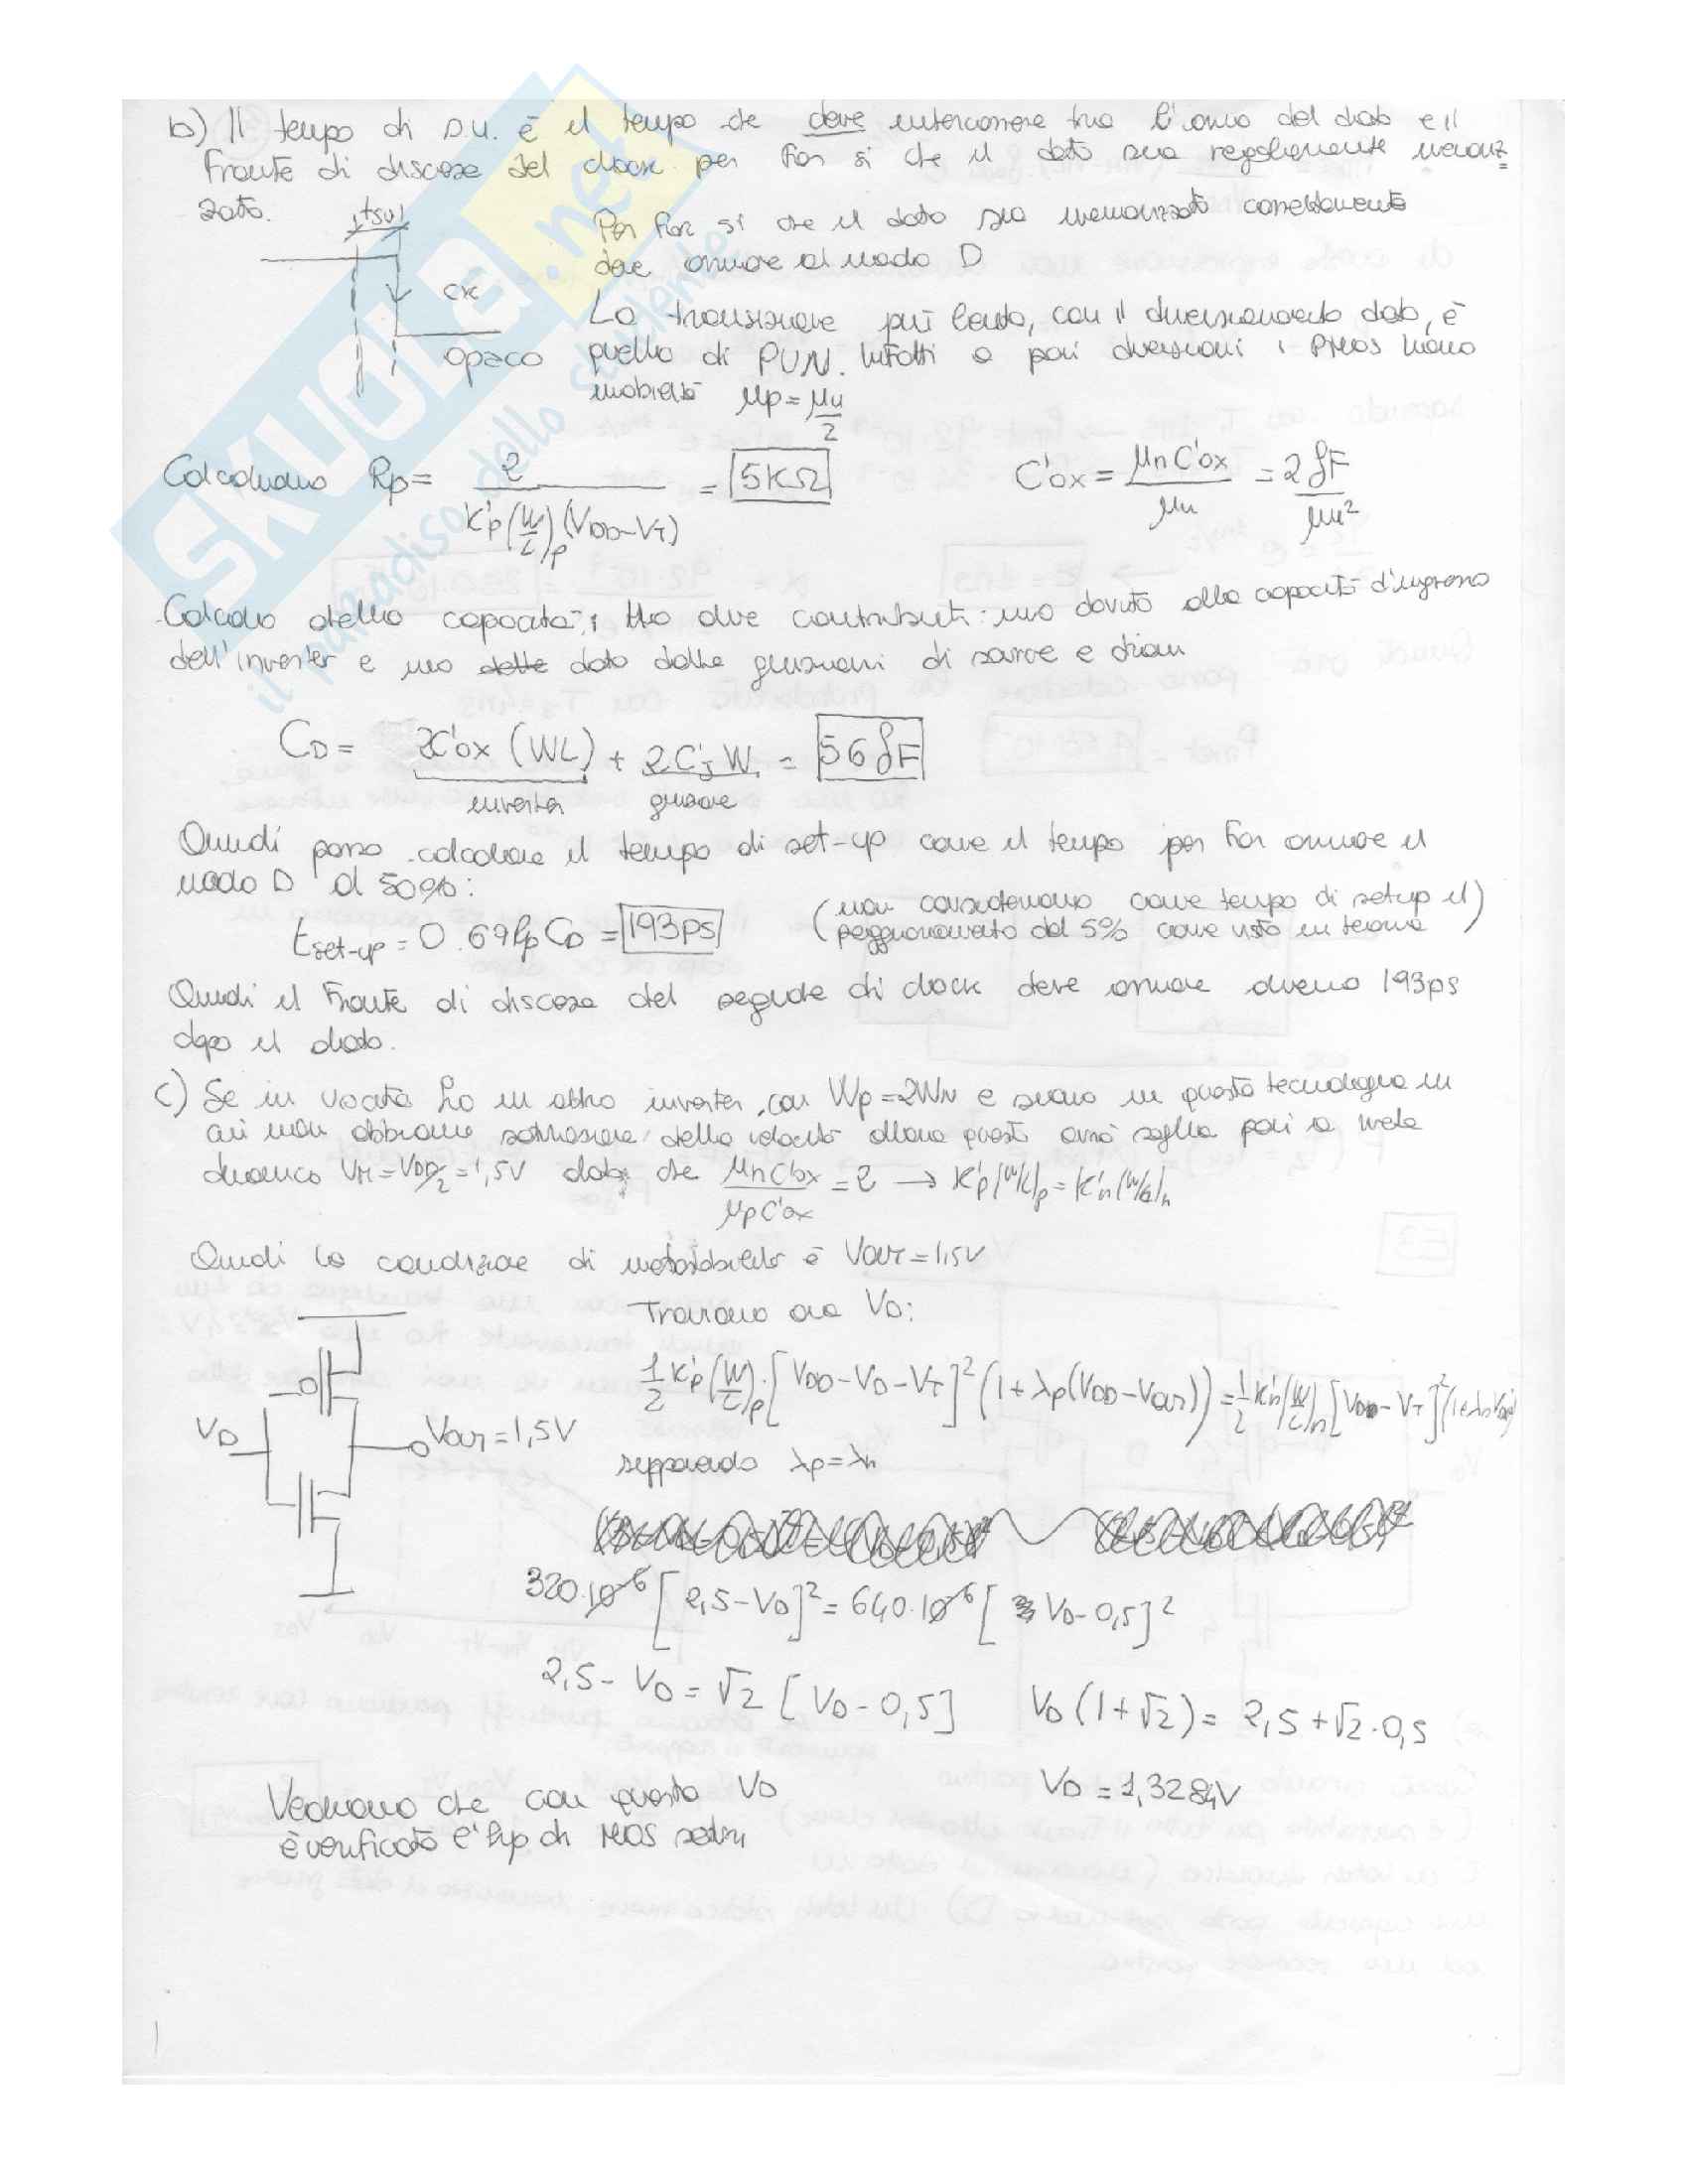 b) Il tempo di S.U. è il tempo che deve intercorrere tra l'arrivo del dato e il
fronte di discesa del clock per far sì che il dato sia regolarmente memoriz=
zato.
tsu
Per far sì che il dato sia memorizzato correttamente
deve arrivare al nodo D
CK
opaco
La transizione più lenta, con il dimensionamento dato, è
quella di PUN. Infatti a pari dimensioni i PMOS hanno
mobilità μp = μn/2
Calcoliamo Rp = 2/(K'p (W/L)p (VDD-VT)) = 5KΩ
C'ox = μn C'ox/μn = 2 fF/μm²
Calcolo della capacità: Ho due contributi: uno dovuto alla capacità d'ingresso
dell'inverter e uno dato dalle giunzioni di source e drain
CD = 2C'ox (WL) + 2C'J W = 56 fF
inverter giunzione
Quindi posso calcolare il tempo di set-up come il tempo per far arrivare il
nodo D al 50%:
tset-up = 0.69 Rp CD = 193ps
(non consideriamo come tempo di setup il
peggioramento del 5% come visto in teoria)
Quindi il fronte di discesa del segnale di clock deve arrivare almeno 193ps
dopo il dato.
c) Se in uscita ho un altro inverter, con Wp=2WN e siamo in questa tecnologia in
cui non abbiamo saturazione della velocità allora questo avrà soglia pari a metà
dinamica VM = VDD/2 = 1,5V dato che μn C'ox/μp C'ox = 2 → K'p (W/L)p = K'n (W/L)n
Quindi la condizione di metastabilità è VOUT = 1,5V
Troviamo ora VD:
1/2 K'p (W/L)p · [VDD-VD-VT]² (1+λp(VDD-VOUT)) = 1/2 K'n (W/L)n [VD-VT]² (1+λn VOUT)
VD
VOUT = 1,5V
supponendo λp = λn
320·10⁻⁶ [2,5-VD]² = 640·10⁻⁶ [VD-0,5]²
2,5-VD = √2 [VD-0,5] VD (1+√2) = 2,5+√2·0,5
VD = 1,3284V
Vediamo che con questo VD
è verificata l'hp di MOS saturi
SKUOLA.net
il paradiso dello studente